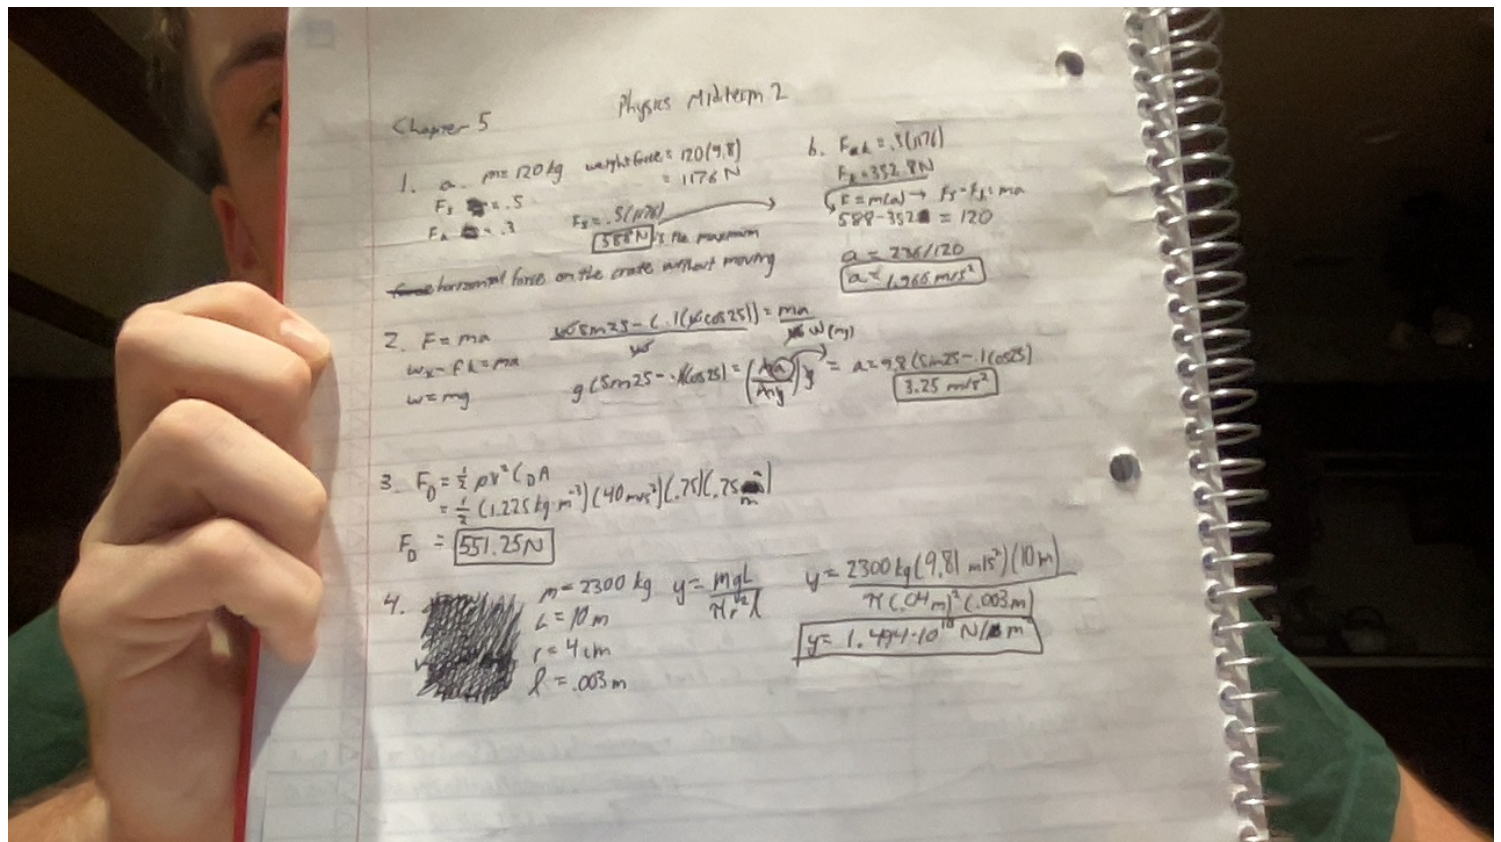 Physics Midterm 2
Chapter 5
1. a. m = 120 kg weight force = 120(9.8)
= 1176 N
Fs = .5
Fk = .3
Fs = .5(1176)
588N is the maximum
horizontal force on the crate without moving
b. Fk = .3(1176)
Fk = 352.8N
F = m(a) → Fs - Fk = ma
588 - 352 = 120
a = 236/120
a = 1.966 m/s²
2. F = ma
wx - fk = ma
w = mg
wsin25 - (.1(wcos25)) = ma
w w(mg)
g(sin25 - .1(cos25) = (ma/mg)g = a = 9.8(sin25 - .1cos25)
3.25 m/s²
3. F_D = ½ρv²C_DA
= ½(1.225 kg·m⁻³)(40 m/s²)(.75)(.75 m)
F_D = 551.25N
4. m = 2300 kg
L = 10 m
r = 4 cm
l = .003 m
y = mgL/πr²l
y = 2300 kg(9.81 m/s²)(10 m)
π(.04 m)²(.003 m)
y = 1.494·10¹⁰ N/m